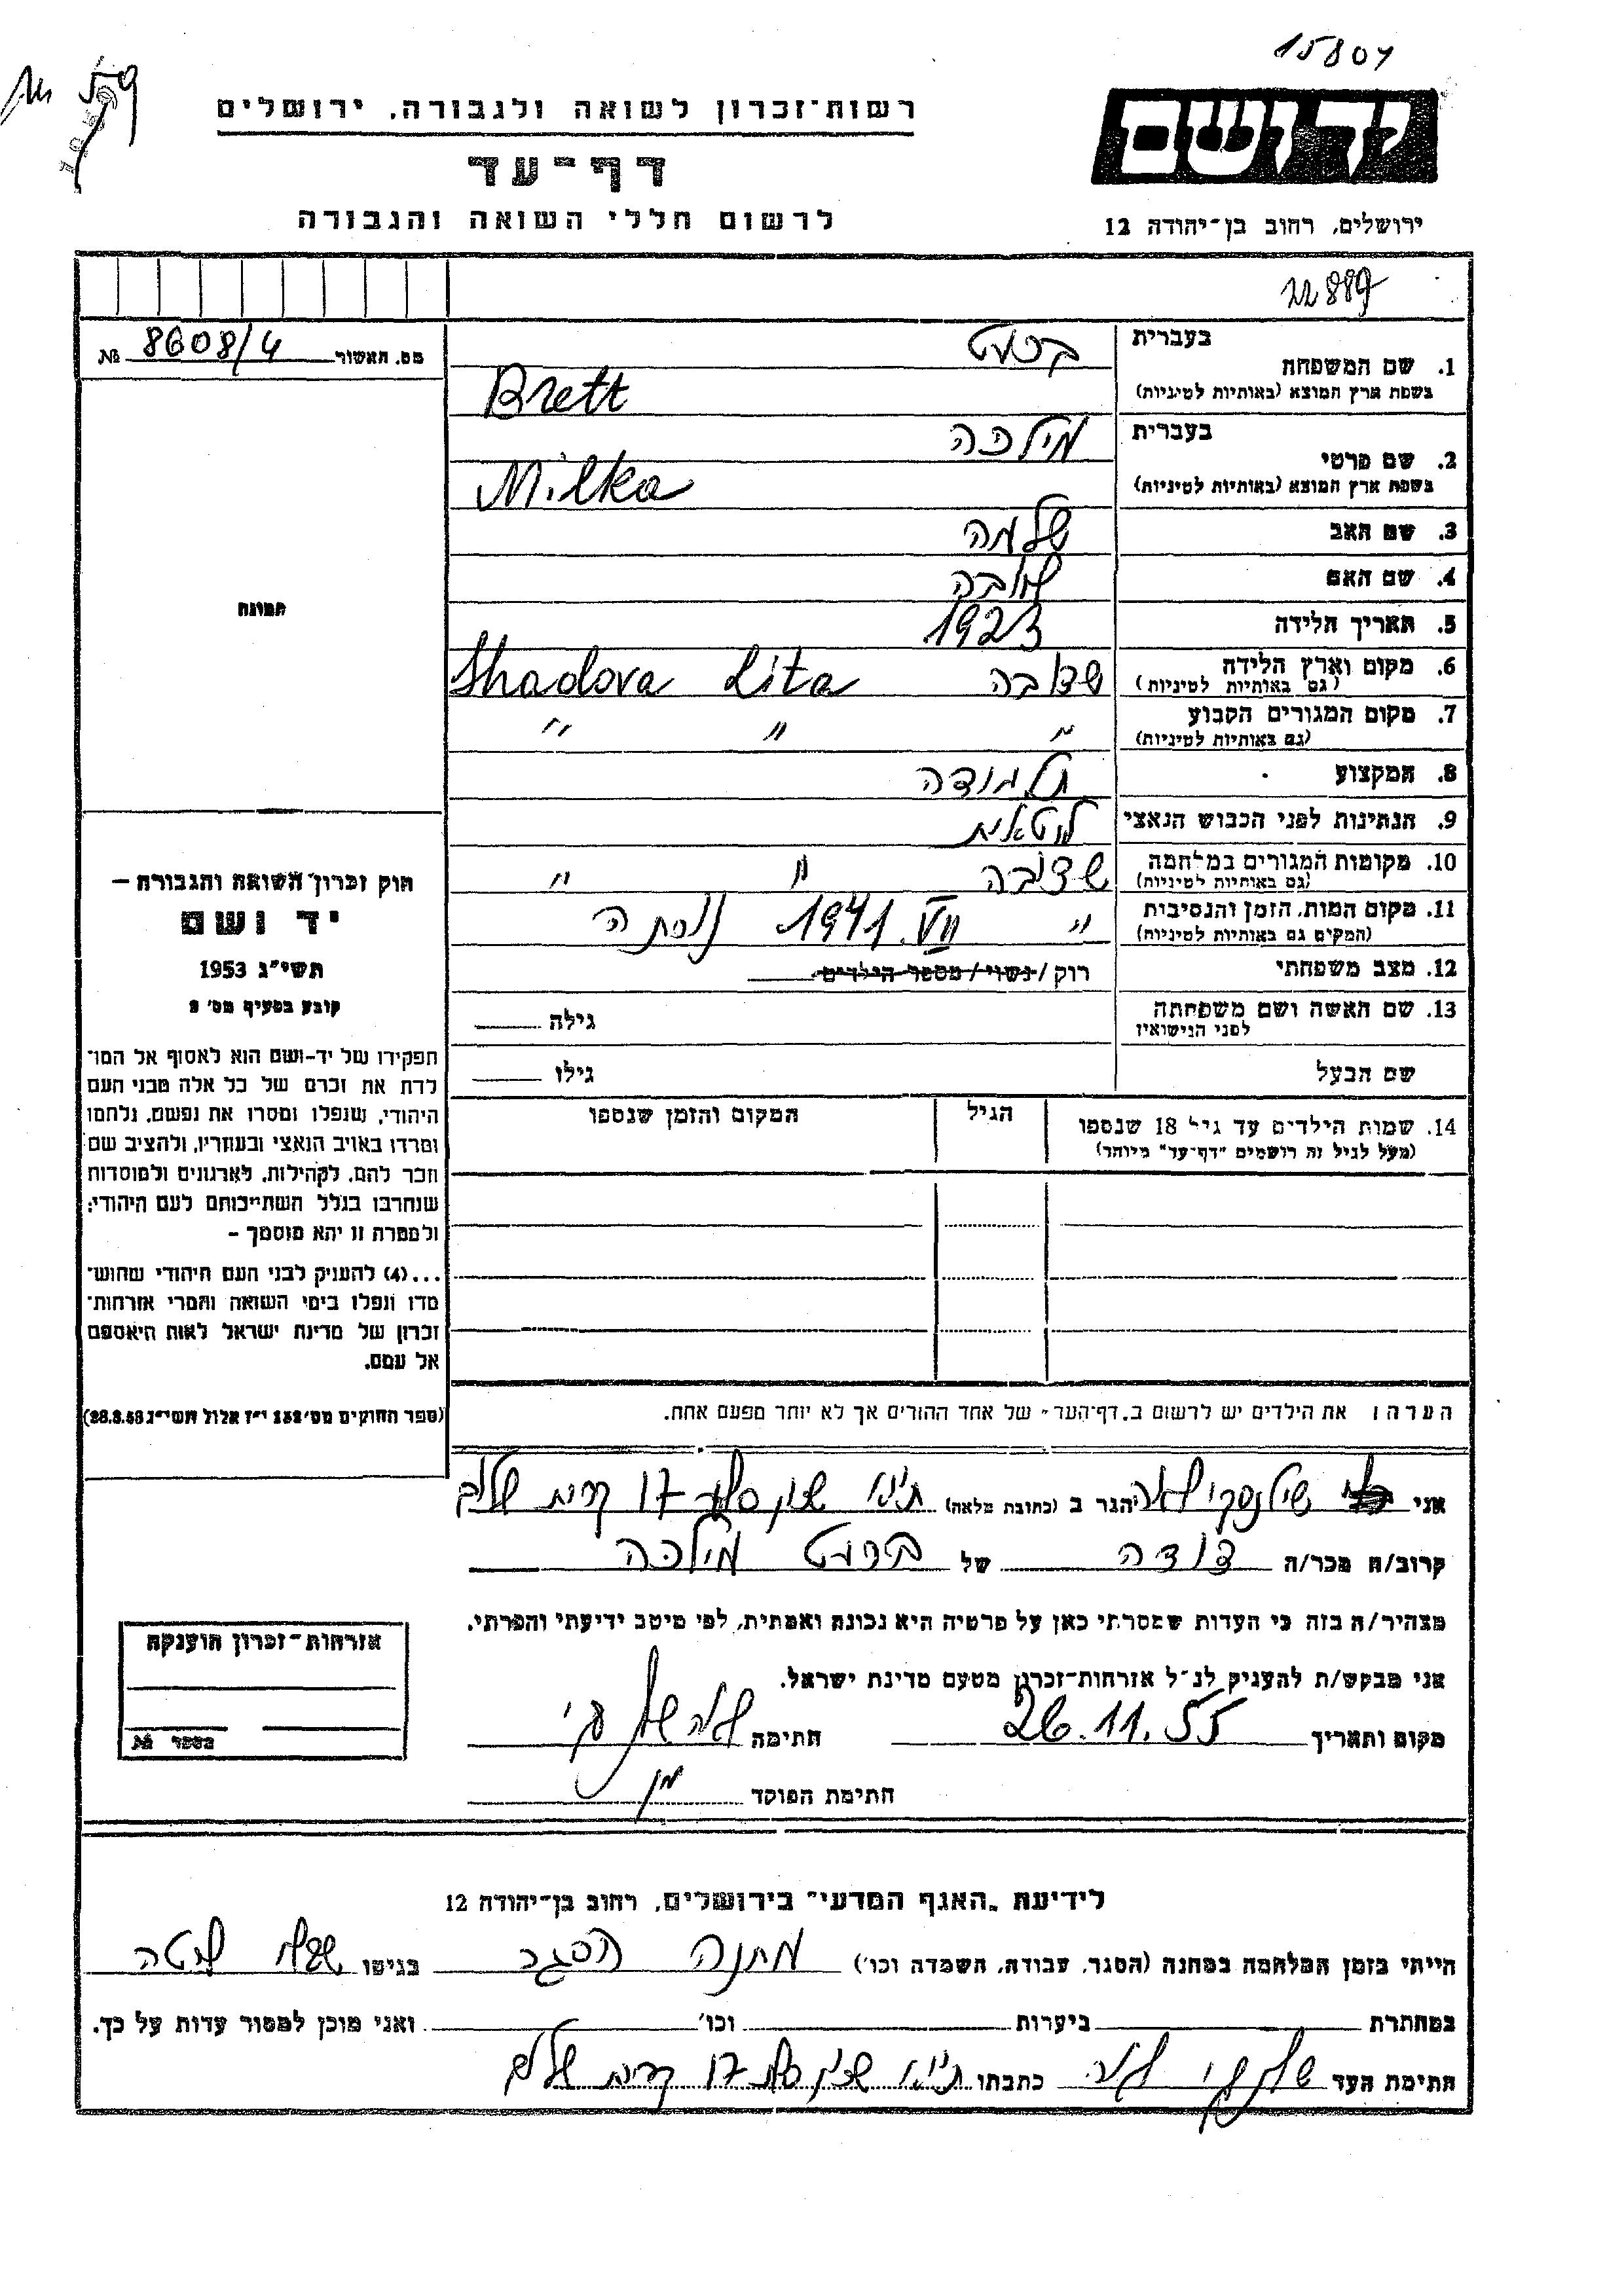 15804
59
רשות־זכרון לשואה ולגבורה, ירושלים
יד ושם
דף־עד
לרשום חללי השואה והגבורה
ירושלים, רחוב בן־יהודה 12
22889
מס. האשור 8608/4 №
תמונה
1. שם המשפחה
בעברית ברט
בשפת ארץ המוצא (באותיות לטיניות) Brett
2. שם פרטי
בעברית מילכה
בשפת ארץ המוצא (באותיות לטיניות) Milka
3. שם האב שלמה
4. שם האם
5. תאריך הלידה 1923
6. מקום וארץ הלידה שדובה Shadova Lita
(גם באותיות לטיניות)
7. מקום המגורים הקבוע " " "
(גם באותיות לטיניות)
8. המקצוע תלמידה
9. הנתינות לפני הכבוש הנאצי ליטאית
10. מקומות המגורים במלחמה שדובה " "
(גם באותיות לטיניות)
11. מקום המות, הזמן והנסיבות " 1941.VII נורתה
(המקום גם באותיות לטיניות)
12. מצב משפחתי רוק / נשוי / מספר הילדים
13. שם האשה ושם משפחתה גילה
לפני הנישואין
שם הבעל גילו
14. שמות הילדים עד גיל 18 שנספו הגיל המקום והזמן שנספו
(מעל לגיל זה רושמים "דף־עד" מיוחד)
חוק זכרון השואה והגבורה —
יד ושם
תשי"ג 1953
קובע בסעיף מס' 2
תפקידו של יד-ושם הוא לאסוף אל המו־
לדת את זכרם של כל אלה מבני העם
היהודי, שנפלו ומסרו את נפשם, נלחמו
ומרדו באויב הנאצי ובעוזריו, ולהציב שם
וזכר להם, לקהילות, לארגונים ולמוסדות
שנחרבו בגלל השתייכותם לעם היהודי;
ולמטרה זו יהא מוסמך –
...(4) להעניק לבני העם היהודי שהוש־
מדו ונפלו בימי השואה והמרי אזרחות־
זכרון של מדינת ישראל לאות היאספם
אל עמם.
(ספר החוקים מס' 132 י"ז אלול תשי"ג 28.8.53)
הערה: את הילדים יש לרשום ב„דף־העד" של אחד ההורים אך לא יותר מפעם אחת.
אני שילנסקי לאה הגר ב (כתובת מלאה) 17 קרית שלום
קרוב/ה מכר/ה דודה של ברט מילכה
מצהיר/ה בזה כי העדות שמסרתי כאן על פרטיה היא נכונה ואמתית, לפי מיטב ידיעתי והכרתי.
אני מבקש/ת להעניק לנ"ל אזרחות־זכרון מטעם מדינת ישראל.
מקום ותאריך 26.11.55 חתימה
חתימת הפוקד
אזרחות־זכרון הוענקה
מספר №
לידיעת „האגף המדעי" בירושלים, רחוב בן־יהודה 12
הייתי בזמן המלחמה במחנה (הסגר, עבודה, השמדה וכו') מחנה הסגר בגיטו
במחתרת ביערות וכו' ואני מוכן למסור עדות על כך.
חתימת העד כתבתו 17 קרית שלום